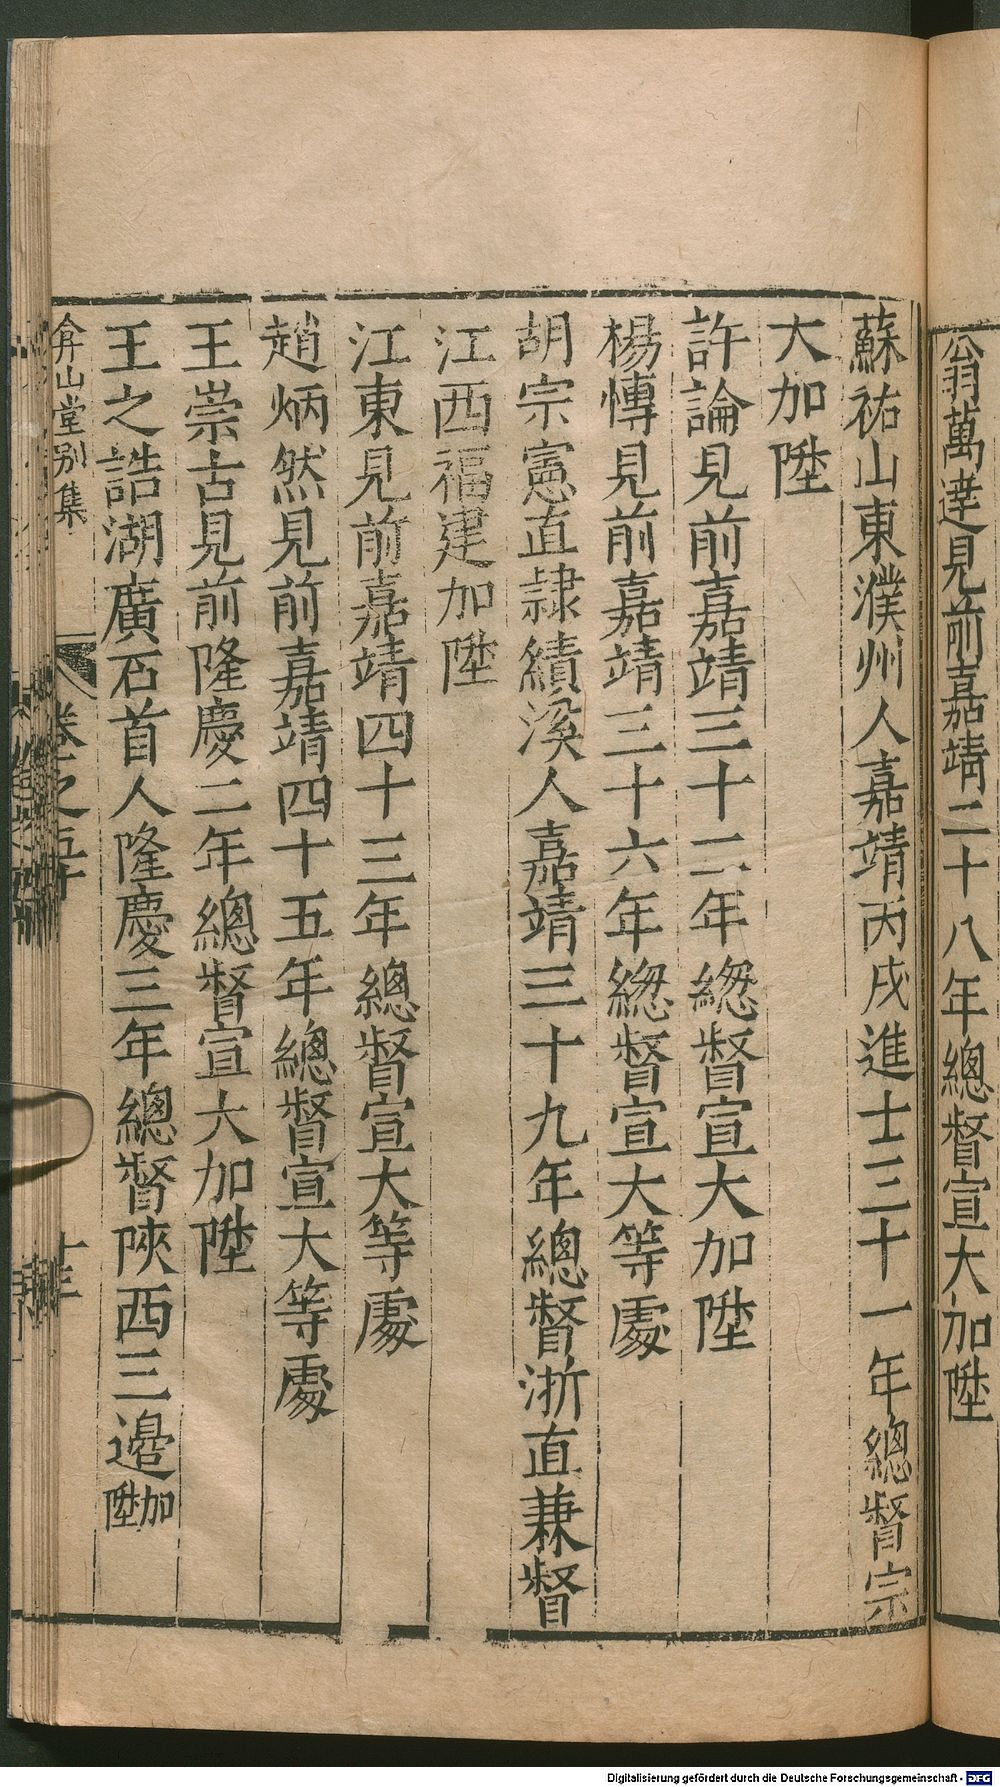 翁萬達見前嘉靖二十八年總督宣大加陞
蘇祐山東濮州人嘉靖丙戌進士三十一年總督宗
大加陞
許論見前嘉靖三十二年總督宣大加陞
楊愽見前嘉靖三十六年總督宣大等處
胡宗憲直隷績溪人嘉靖三十九年總督浙直兼督
江西福建加陞
江東見前嘉靖四十三年總督宣大等處
趙炳然見前嘉靖四十五年總督宣大等處
王崇古見前隆慶二年總督宣大加陞
王之誥湖廣石首人隆慶三年總督陝西三邊加陞
弇山堂別集 卷之五十 十三
Digitalisierung gefördert durch die Deutsche Forschungsgemeinschaft - DFG